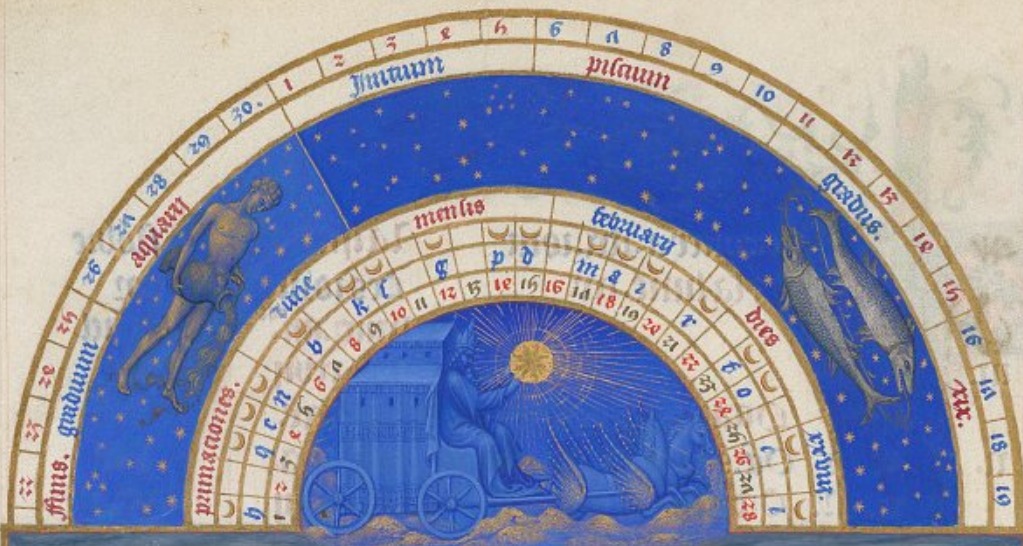 22 23 24 25 26 27 28 29 30. 1 2 3 4 5 6 7 8 9 10 11 12 13 14 15 16 17 18 19
finis. graduum aquarii Inicium piscium gradus. xix.
primaciones. lune mensis february dies xxviii.
q e n b k p d m a r o
1 2 3 4 5 6 7 8 9 10 11 12 13 14 15 16 17 18 19 20 21 22 23 24 25 26 27 28